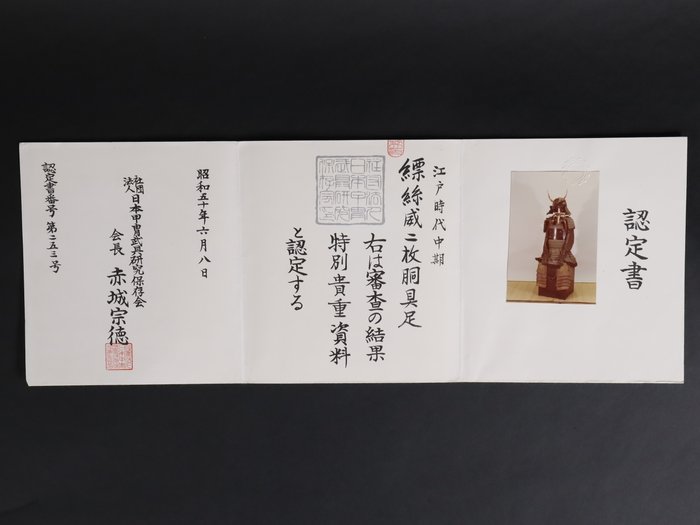 認定書
江戸時代中期
縹絲威二枚胴具足
右は審査の結果
特別貴重資料
と認定する
昭和五十年六月八日
社団法人日本甲冑武具研究保存会
会長 赤城宗徳
認定書番号 第二五三号